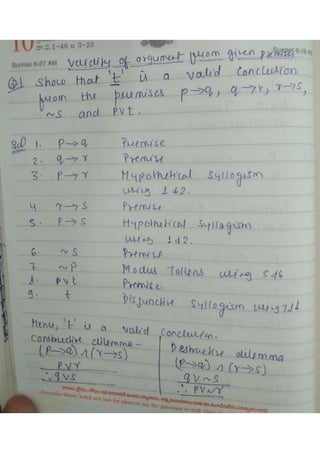 10
1-46 3-23
Sunrise 6-27 AM
validity of argument from given premises
Q1 Show that 't' is a valid conclusion
from the premises p→q, q→r, r→s,
~s and pvt.
Sol 1. P→q Premise
2. q→r Premise
3. P→r Hypothetical Syllogism
using 1&2.
4. r→s Premise
5. P→S Hypothetical Syllogism
using 1&2.
6. ~S Premise
7. ~P Modus Tollens using 5&6
8. pvt Premise
9. t Disjunctive Syllogism using 7&8
Hence, 't' is a valid conclusion.
Constructive dilemma-
(P→q) ∧ (r→s)
pvr
∴ qvs
Destructive dilemma
(P→q) ∧ (r→s)
qv~s
∴ pv~r